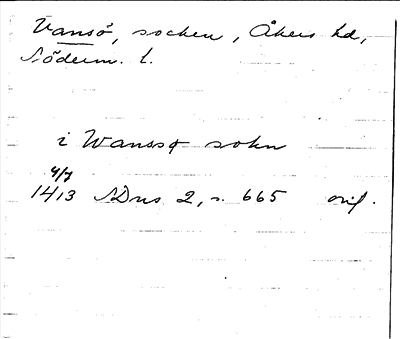 Vansö, socken, Åkers hd,
Söderm. l.
i Wanssø sokn
4/7
1413 SDns 2, s. 665 orig.